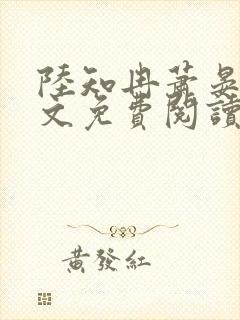 陸知冉蕭晏
文免費閱讀
黃發紅